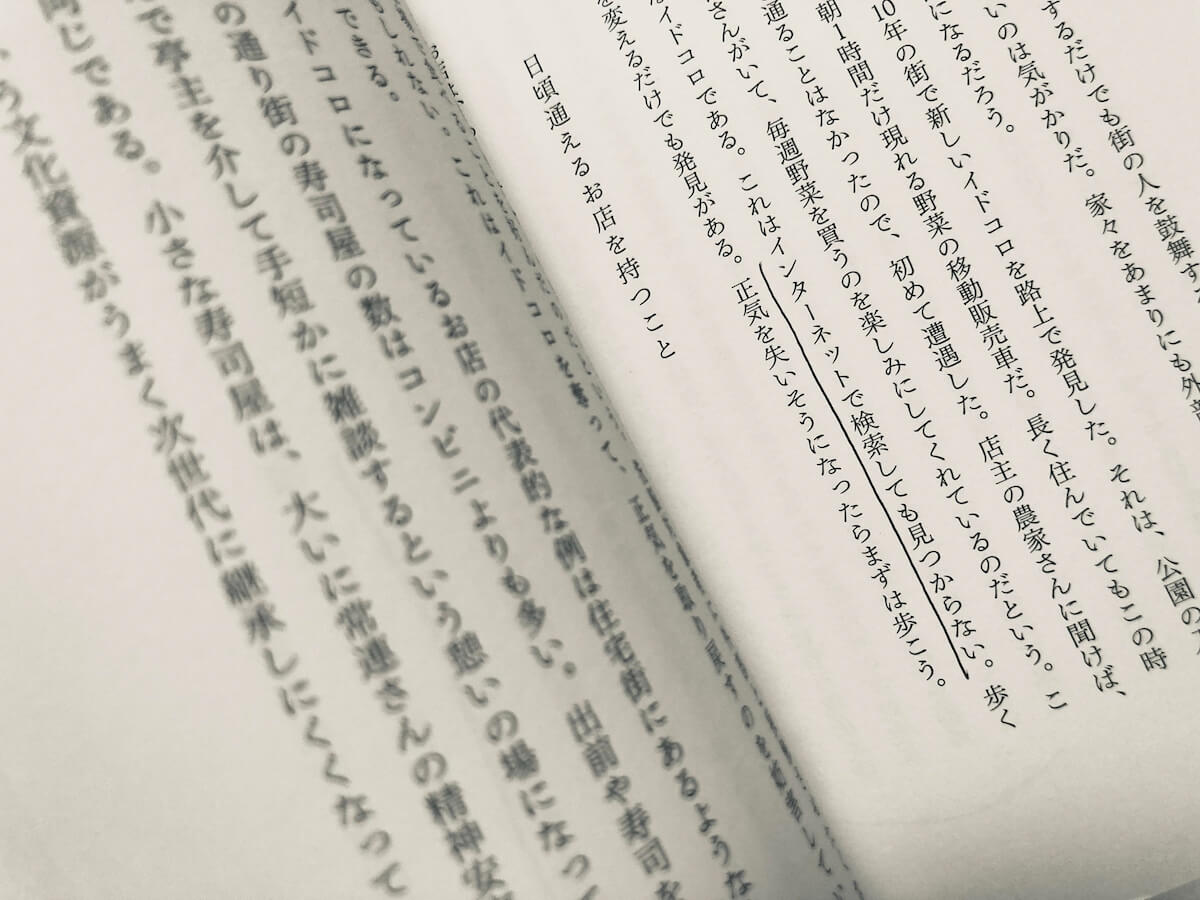 するだけでも街の人を鼓舞す
いのは気がかりだ。家々をあまりにも外
になるだろう。
10年の街で新しいイドコロを路上で発見した。それは、公園の
朝1時間だけ現れる野菜の移動販売車だ。長く住んでいてもこの時
通ることはなかったので、初めて遭遇した。店主の農家さんに聞けば、
さんがいて、毎週野菜を買うのを楽しみにしてくれているのだという。こ
なイドコロである。これはインターネットで検索しても見つからない。歩く
を変えるだけでも発見がある。正気を失いそうになったらまずは歩こう。
日頃通えるお店を持つこと
しれない。これはイドコロを奪って、正気を取り戻すのを
できる。
イドコロになっているお店の代表的な例は住宅街にあるような
の通り街の寿司屋の数はコンビニよりも多い。出前や寿司を
で亭主を介して手短かに雑談するという憩いの場になって
同じである。小さな寿司屋は、大いに常連さんの精神安
う文化資源がうまく次世代に継承しにくくなって